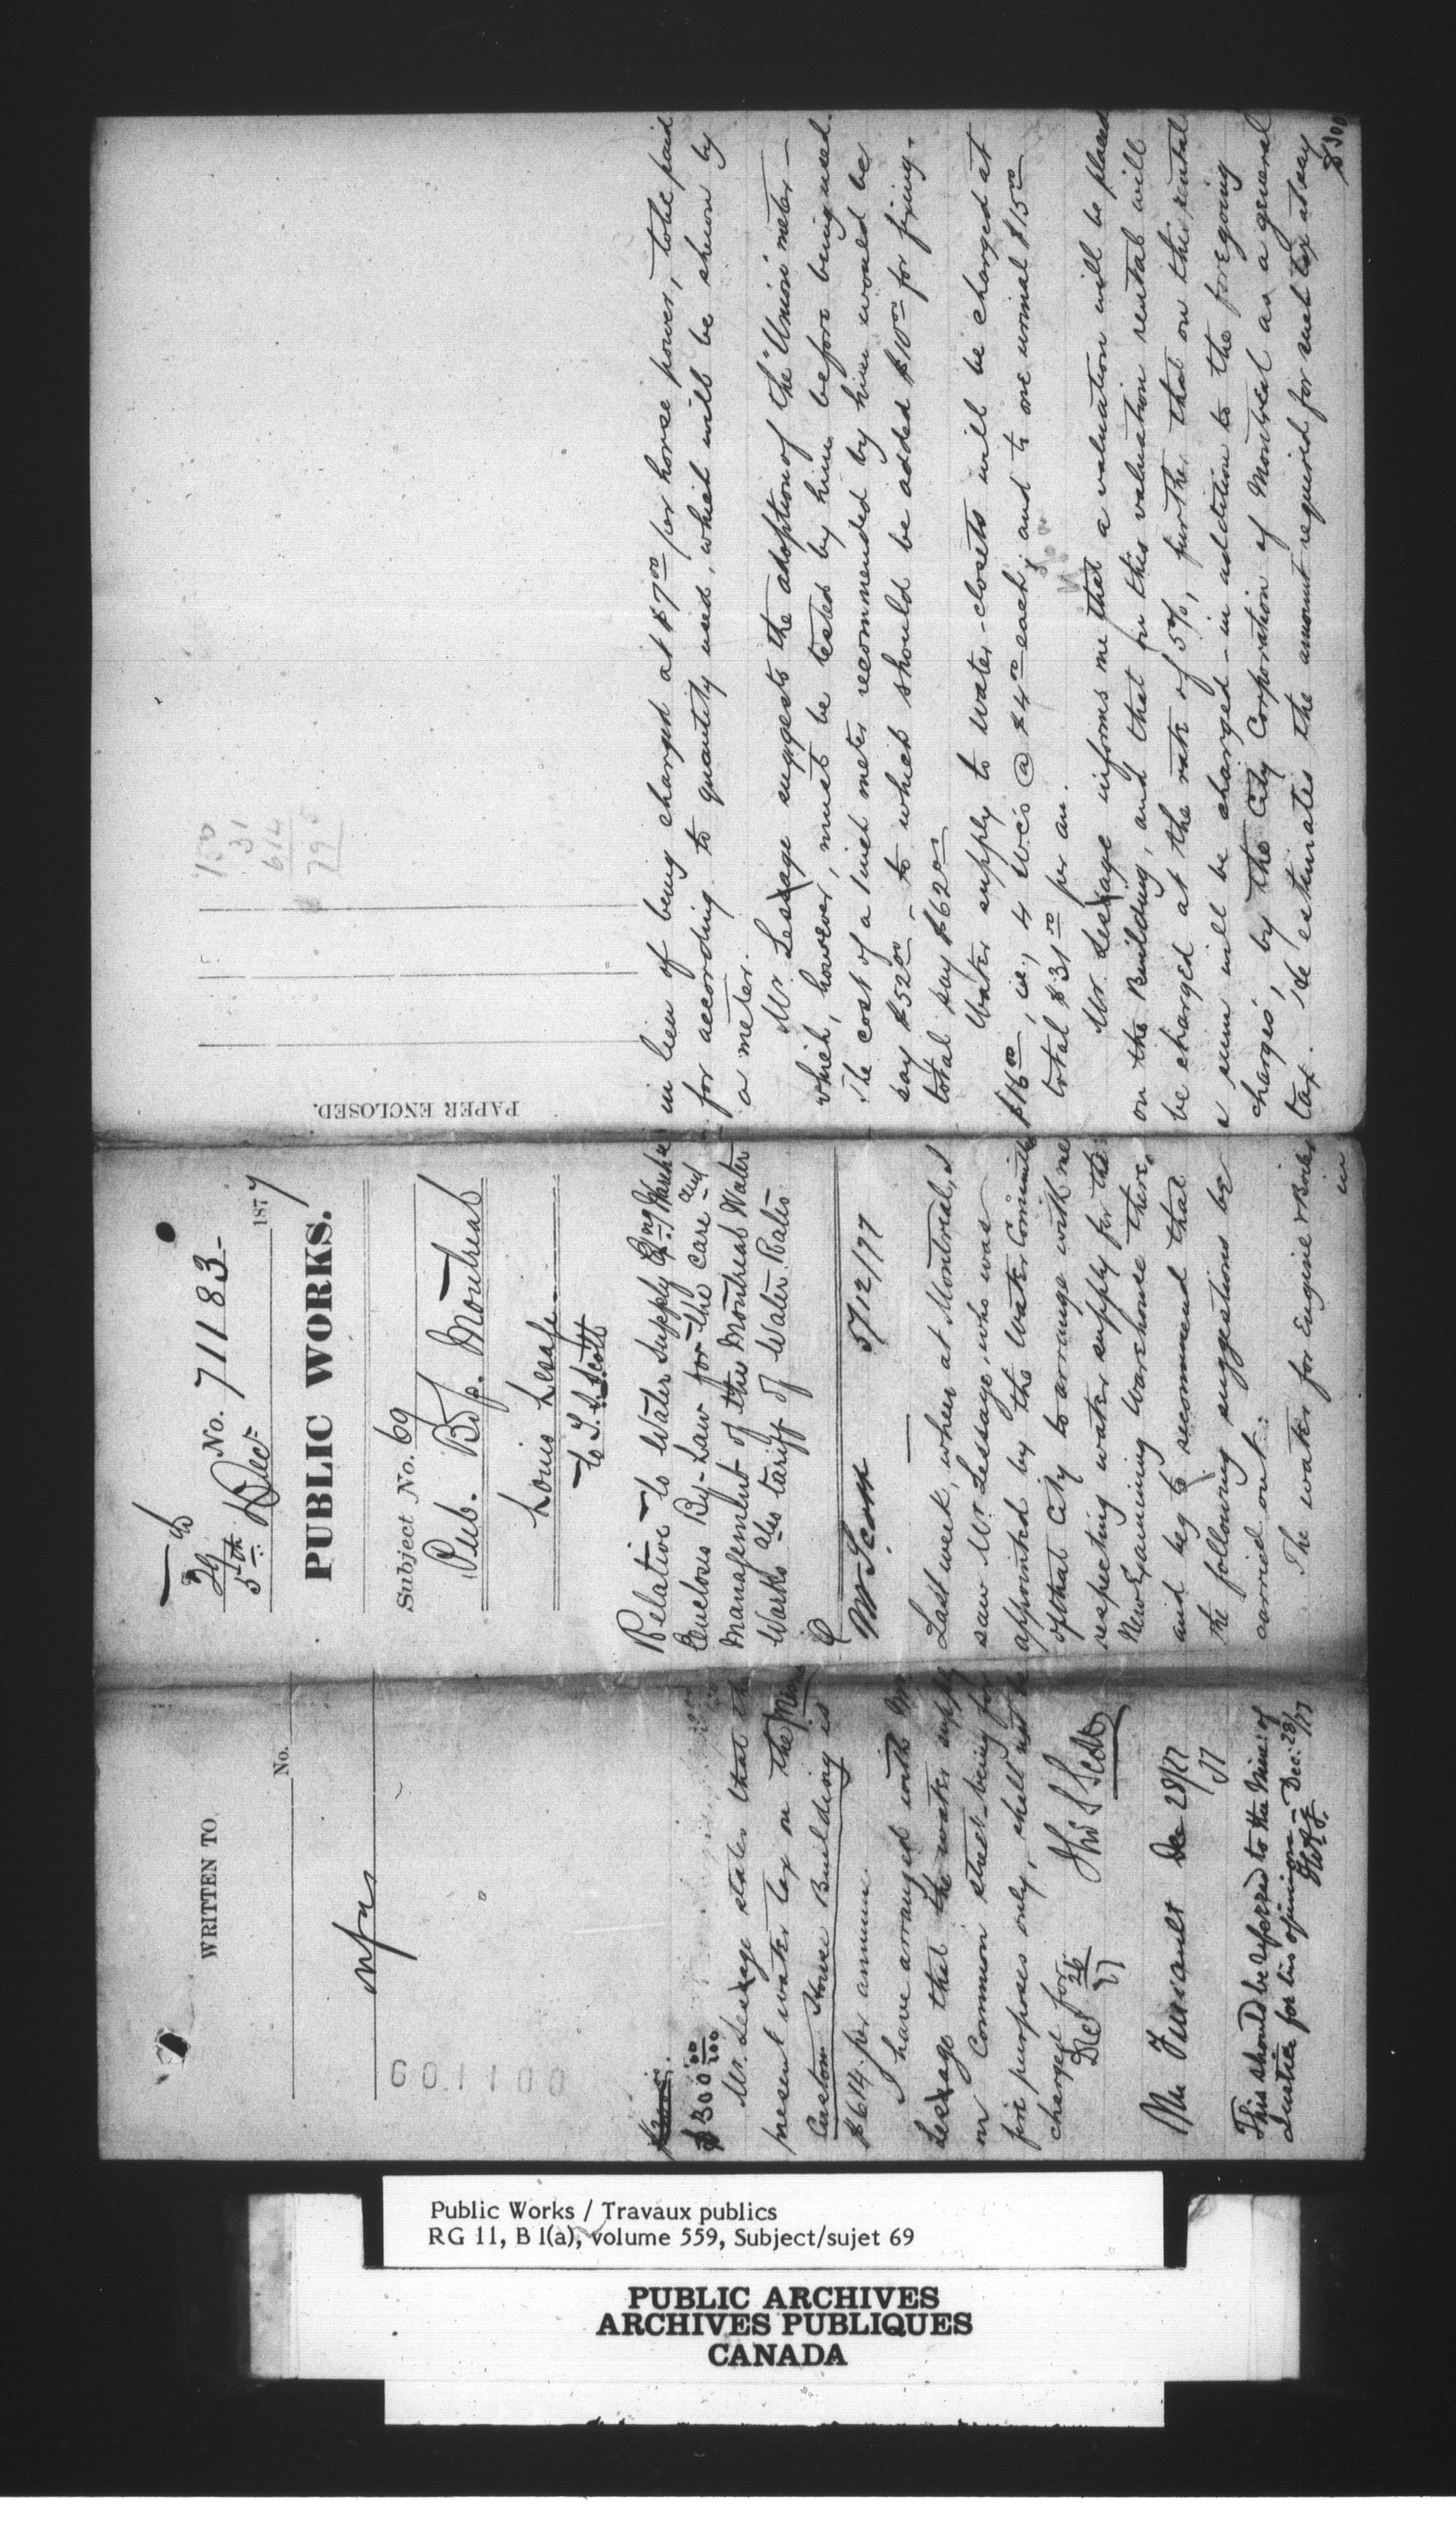 No. 71183
5th Dec. 1877
PUBLIC WORKS.
Subject No. 69
Pub. Bdgs. Montreal
Louis Lesage
to T. S. Scott
Relative to Water Supply Exng Wareh.
Encloses By-Law for the Care and
Management of the Montreal Water
Works also tariff of Water Rates
Mr Scott 5/12/77
Last week, when at Montreal, I
saw Mr Lessage, who was
appointed by the Water Committee
of that City to arrange with me
respecting water supply for the
New Examining Warehouse there,
and beg to recommend that
the following suggestions be
carried out:
The water for Engine & Boiler
in
PAPER ENCLOSED.
150
31
614
$ 795
in lieu of being charged at $7.00 per horse power, to be paid
for according to quantity used, which will be shewn by
a meter.
Mr. Lesage suggests the adoption of the "Union" meter—
which, however, must be tested by him before being used.
The cost of a 1 inch meter recommended by him would be
say $52.00 - to which should be added $10.00 for fixing.
total say $62.00
Water supply to Water-closets will be charged at
$16.00, ie., 4 W.C's @ $4.00 each, and to one urinal $15.00
total $31.00 per an.
Mr. Lesage informs me that a valuation will be placed
on the Building, and that for this valuation rental will
be charged at the rate of 5%, further that on this rental
a sum will be charged - in addition to the foregoing
charges, by the City Corporation of Montreal as a general
tax. He estimates the amount required for such tax at say
$300
WRITTEN TO
No.
001100
$300 00/100
Mr. Lesage states that the
present water tax on the Main
Custom House Building is
$614. per annum
I have arranged with Mr
Lesage that the water supply
on Common street being for
fire purposes only, shall not be
charged for.
Dec 26/77 Thos S Scott
Mr Dec 28/77
This should be referred to the Min: of
Justice for his opinion - Dec: 28/77
Public Works / Travaux publics
RG 11, B 1(a), volume 559, Subject/sujet 69
PUBLIC ARCHIVES
ARCHIVES PUBLIQUES
CANADA